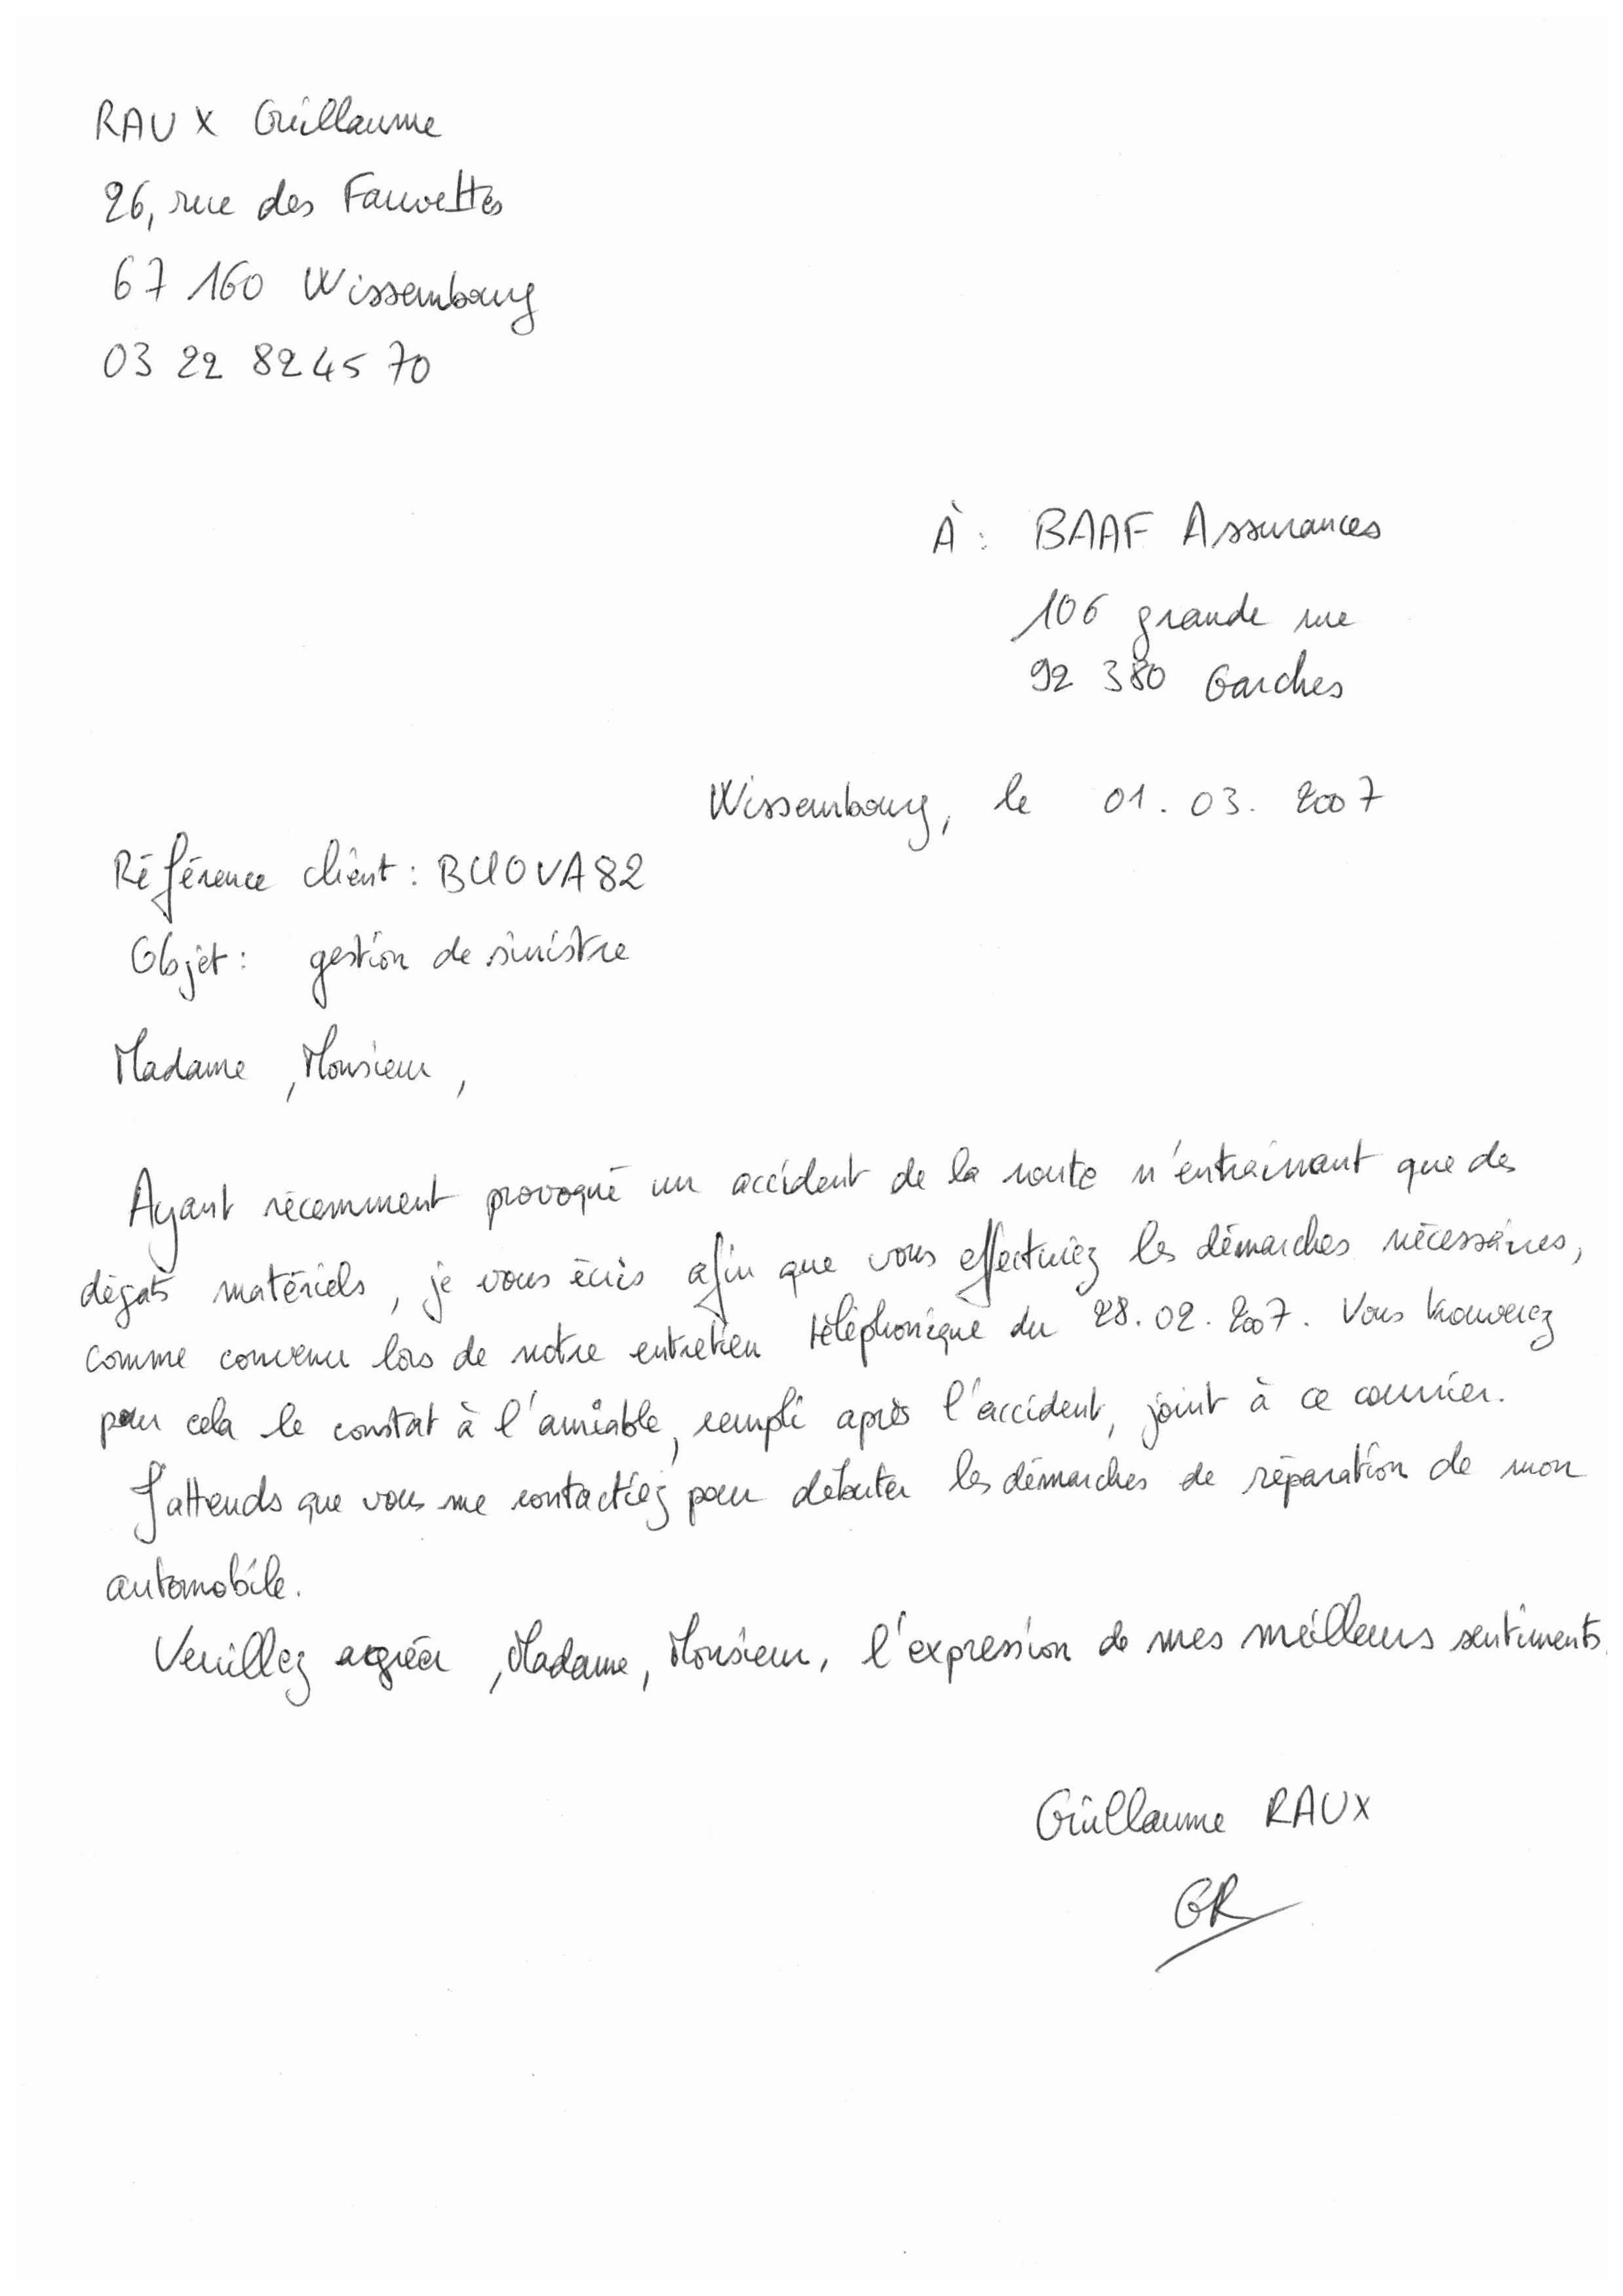 RAUX Guillaume
26, rue des Fauvettes
67 160 Wissembourg
03 22 82 45 70
À : BAAF Assurances
106 grande rue
92 380 Garches
Wissembourg, le 01. 03. 2007
Référence client : BUOVA82
Objet : gestion de sinistre
Madame, Monsieur,
Ayant récemment provoqué un accident de la route n'entrainant que des
dégats matériels, je vous écris afin que vous effectuiez les démarches nécessaires,
comme convenu lors de notre entretien téléphonique du 28. 02. 2007. Vous trouverez
pour cela le constat à l'amiable, rempli après l'accident, joint à ce courrier.
J'attends que vous me contactiez pour débuter les démarches de réparation de mon
automobile.
Veuillez agréer, Madame, Monsieur, l'expression de mes meilleurs sentiments.
Guillaume RAUX
GR